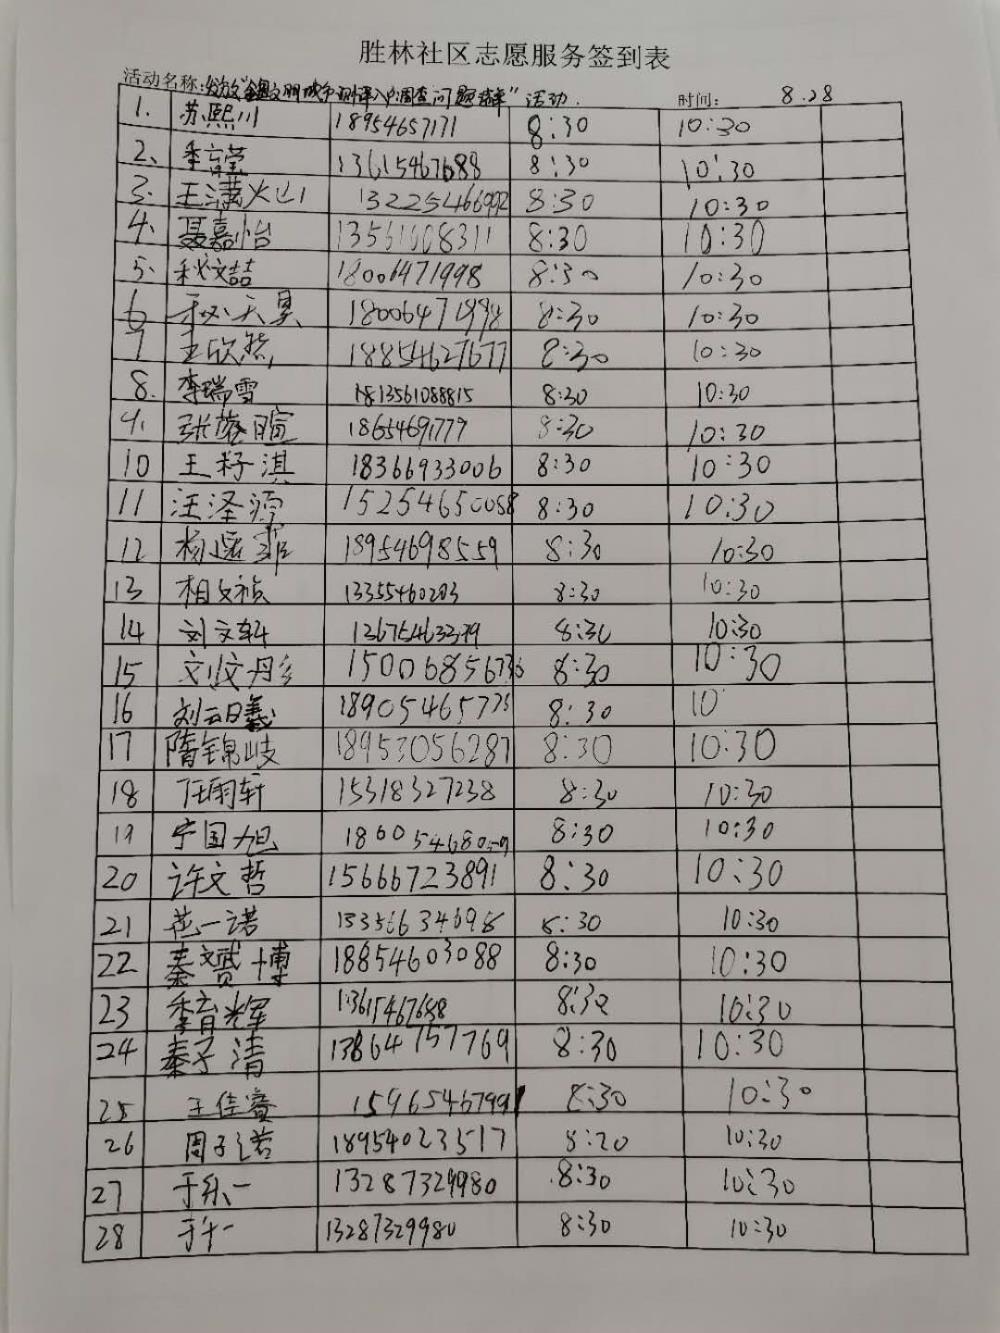 胜林社区志愿服务签到表
活动名称:发放"全国文明城市测评入户调查问题清单"活动. 时间: 8.28
1. 苏熙川 18954657171 8:30 10:30
2、 季育莹 13615467688 8:30 10:30
3. 王满火山 13225466992 8:30 10:30
4. 聂嘉怡 13561008311 8:30 10:30
5. 秘文喆 18006471998 8:30 10:30
6 秘天昊 18006471998 8:30 10:30
7 王欣然 18854627677 8:30 10:30
8. 李瑞雪 1813561088815 8:30 10:30
9. 张 暄 18654691779 8:30 10:30
10 王籽淇 18366933006 8:30 10:30
11 汪泽源 15254650058 8:30 10:30
12 杨 菲 18954698559 8:30 10:30
13 相文祯 13355460203 8:30 10:30
14 刘文轩 8:30 10:30
15 刘文丹彡 15006856736 8:30 10:30
16 刘云曦 8:30 10
17 隋锦岐 18953056287 8:30 10:30
18 任雨轩 15318327238 8:30 10:30
19 宁国旭 18605468059 8:30 10:30
20 许文哲 15666723891 8:30 10:30
21 范一诺 13356634698 8:30 10:30
22 秦赟博 18854603088 8:30 10:30
23 季育辉 13615467688 8:30 10:30
24 秦子清 13864757769 8:30 10:30
25 王佳睿 15965467991 8:30 10:30
26 周子诺 18954023517 8:20 10:30
27 于乐一 13287329980 8:30 10:30
28 于一 13287329980 8:30 10:30